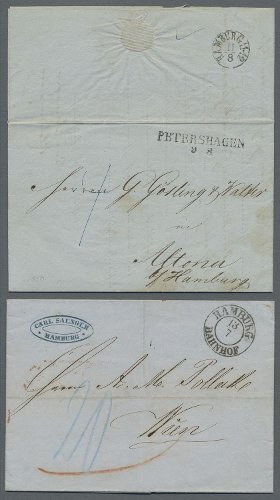 HAMBURG
11
8
PETERSHAGEN
9 8
Herren G. Gösling & Walter
in
Altona
b/Hamburg
CARL SAENGER
HAMBURG
HAMBURG
13
7
BAHNHOF
Herrn A. M. Pollak
20
Wien